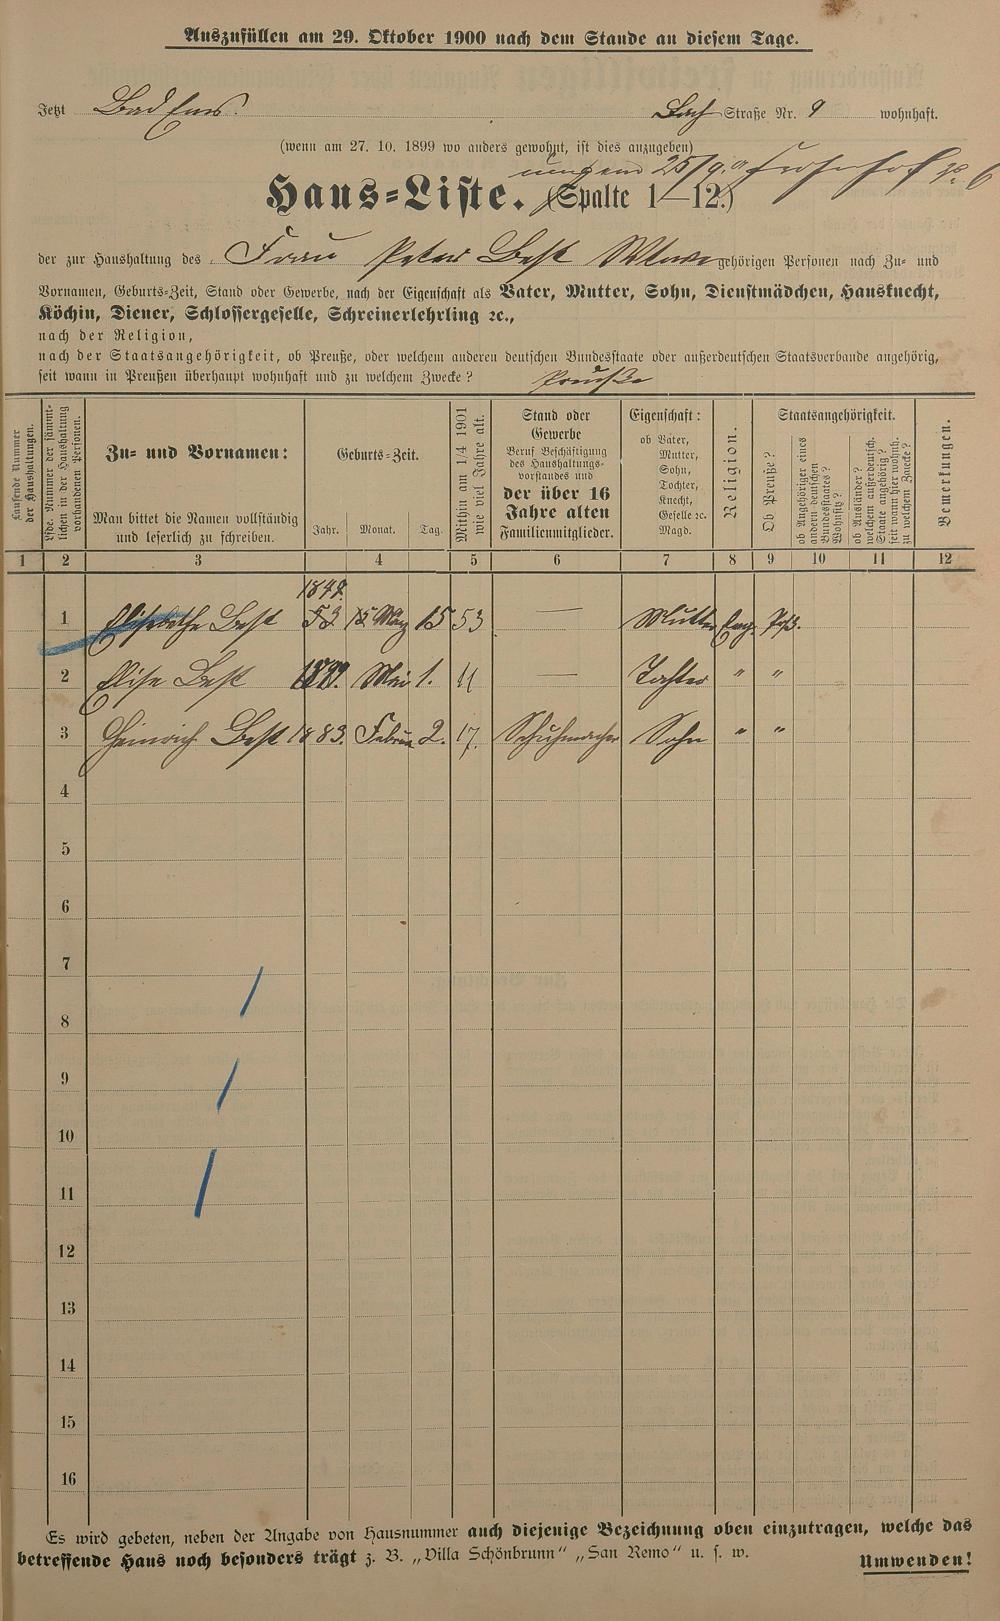 Auszufüllen am 29. Oktober 1900 nach dem Stande an diesem Tage.
Jetzt Bad Ems. Bach Straße Nr. 9 wohnhaft.
(wenn am 27. 10. 1899 wo anders gewohnt, ist dies anzugeben)
25/9.
Haus-Liste. (Spalte 1—12.)
der zur Haushaltung des Frau Peter Best Wtwe gehörigen Personen nach Zu- und
Vornamen, Geburts-Zeit, Stand oder Gewerbe, nach der Eigenschaft als Vater, Mutter, Sohn, Dienstmädchen, Hausknecht,
Köchin, Diener, Schlossergeselle, Schreinerlehrling ꝛc.,
nach der Religion,
nach der Staatsangehörigkeit, ob Preuße, oder welchem anderen deutschen Bundesstaate oder außerdeutschen Staatsverbande angehörig,
seit wann in Preußen überhaupt wohnhaft und zu welchem Zwecke? Preuße
Laufende Nummer der Haushaltungen.
Lfde. Nummer der sämmtlichen in der Haushaltung vorhandenen Personen.
Zu- und Vornamen:
Man bittet die Namen vollständig
und leserlich zu schreiben.
Geburts-Zeit.
Jahr. Monat. Tag.
Mithin am 1/4 1901
wie viel Jahre alt.
Stand oder
Gewerbe
Beruf Beschäftigung
des Haushaltungs-
vorstandes und
der über 16
Jahre alten
Familienmitglieder.
Eigenschaft:
ob Vater,
Mutter,
Sohn,
Tochter,
Knecht,
Geselle ꝛc.
Magd.
Religion.
Staatsangehörigkeit.
Ob Preuße?
ob Angehöriger eines
andern deutschen
Bundesstaates?
Wohnsitz?
ob Ausländer?
welchem außerdeutsch.
Staate angehörig?
seit wann hier wohnh.
zu welchem Zwecke?
Bemerkungen.
1 2 3 4 5 6 7 8 9 10 11 12
1847.
1 Elisabethe Best 53 März 15 53 — Mutter Evg.
2 Elise Best Mai 1. 11 — Tochter " "
3 Heinrich Best 1883. Februar 2. 17. Schuhmacher Sohn " "
4
5
6
7
8
9
10
11
12
13
14
15
16
Es wird gebeten, neben der Angabe von Hausnummer auch diejenige Bezeichnung oben einzutragen, welche das
betreffende Haus noch besonders trägt z. B. „Villa Schönbrunn“ „San Remo“ u. s. w.
Umwenden!